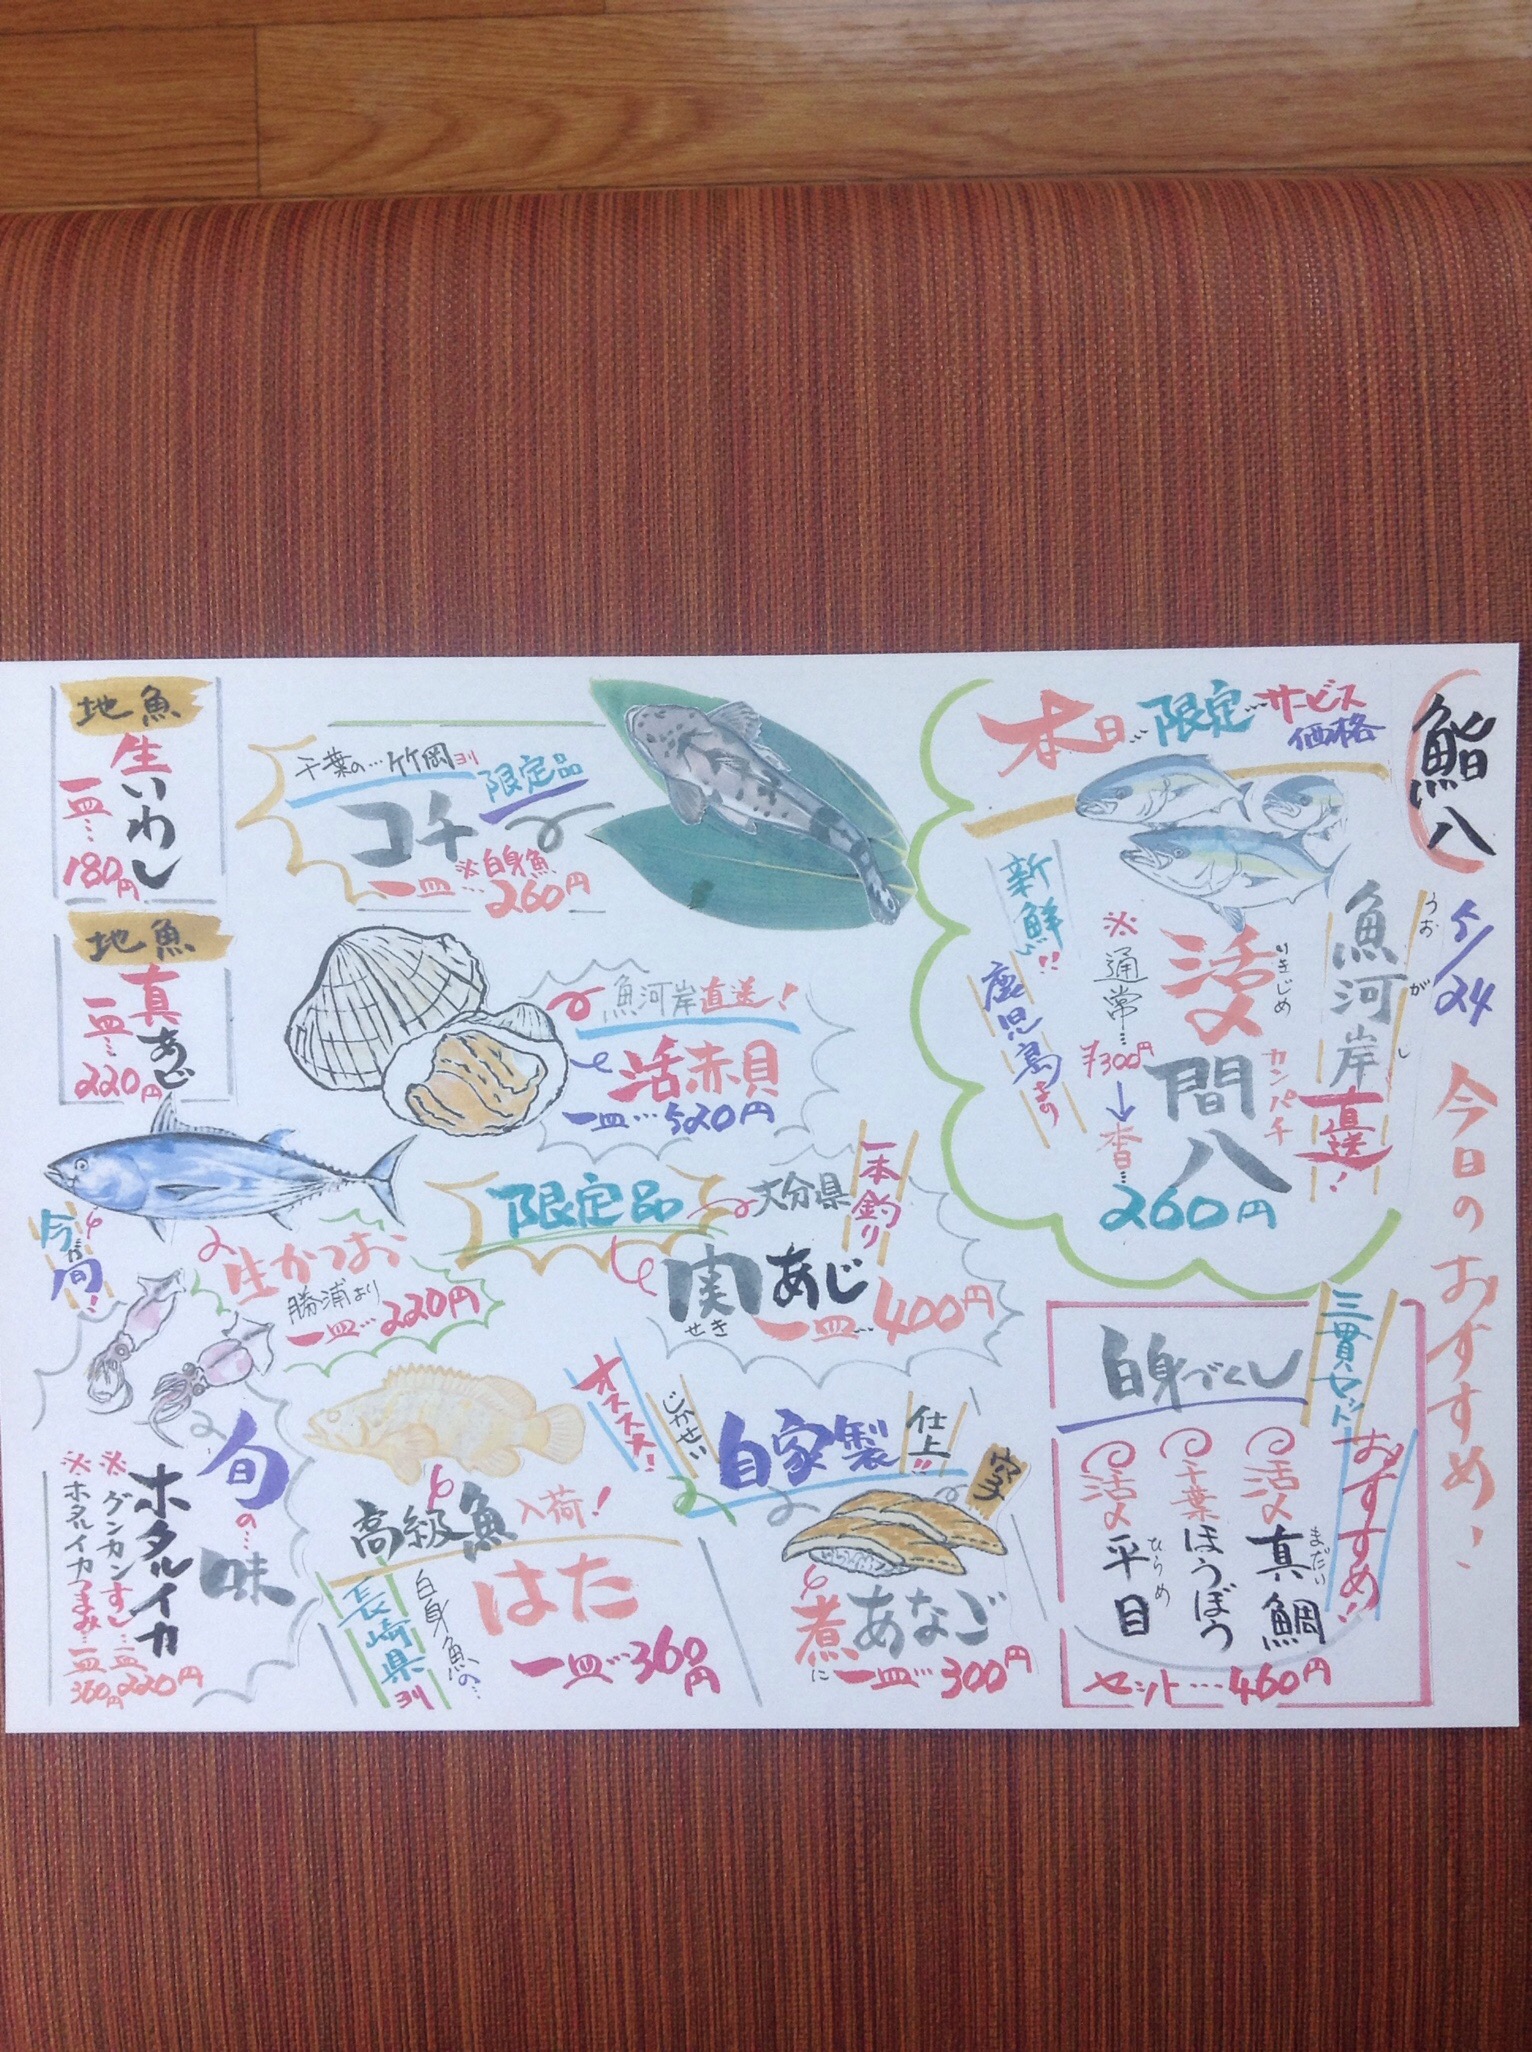 鮨八
5/24
今日のおすすめ!
本日…限定…サービス
価格
魚河岸直送!
うおがし
活〆
いきじめ
間八
カンパチ
※通常…
¥300円
260円
新鮮!!
鹿児島さの
三貫セット
おすすめ!!
白身づくし
活〆
真鯛
まだい
千葉
ほうぼう
活〆
平目
ひらめ
セット…460円
千葉の…竹岡ヨリ
限定品
コチ
※白身魚
一皿…260円
魚河岸直送!
活赤貝
一皿…520円
限定品
大分県
一本釣り
関あじ
せき
一皿…400円
オススメ!
じかせい
自家製
仕上!!
煮あなご
に
一皿…300円
地魚
生いわし
一皿…180円
地魚
真あじ
一皿…220円
今が旬!
生かつお
勝浦より
一皿…220円
高級魚
入荷!
はた
長崎県ヨリ
白身魚の…
一皿…360円
旬の…味
ホタルイカ
※グンカンすし…一皿220円
※ホタルイカつまみ…一皿360円